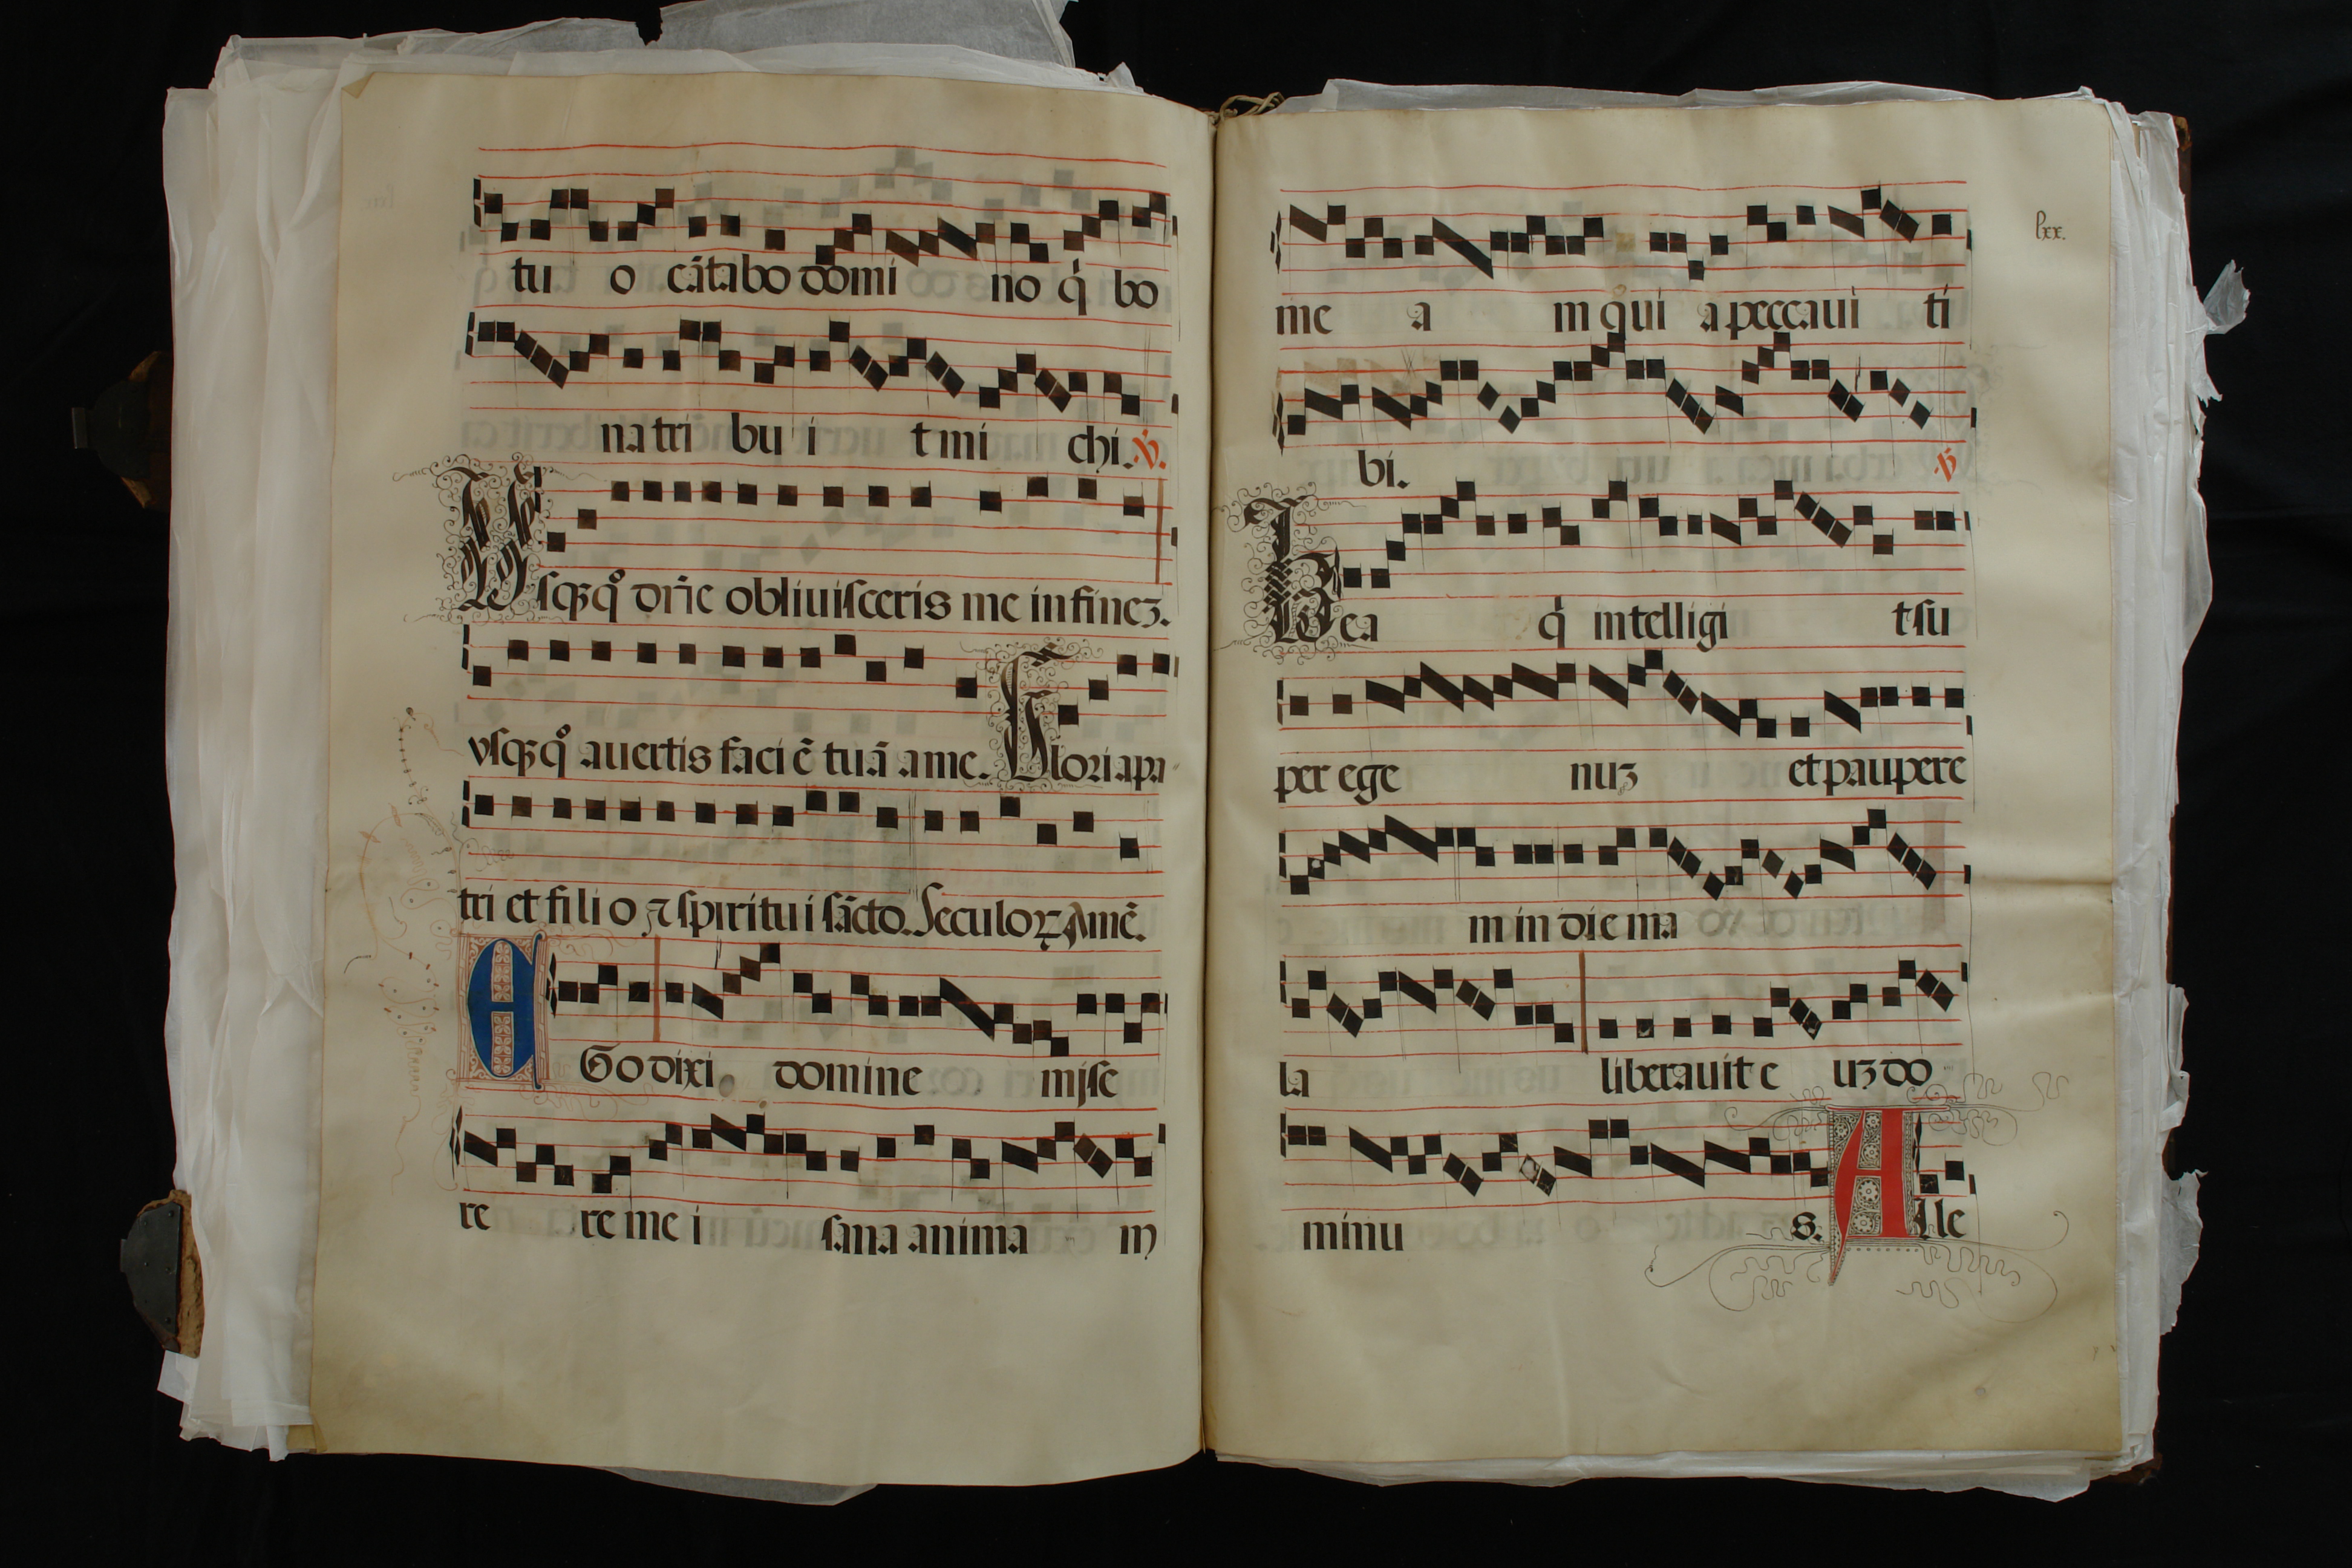 tu o cãtabo domi no q̇ bo
na tri bu i t mi chi. ℣.
Vsqꝫq̊ dñe obliuisceris me in fineꝫ.
vsqꝫq̊ auertis faciẽ tuã a me. Gloria pa
tri et filio ⁊ spiritui sãcto. Seculoꝝ Amẽ.
EGo dixi domine mise
re re mei sana anima m
lxx.
me a m qui a peccaui ti
bi. ℣
Bea q̇ intelligi t su
per ege nuꝫ et paupere
m in die ma
la liberauit e uꝫ do
minu s. Alle